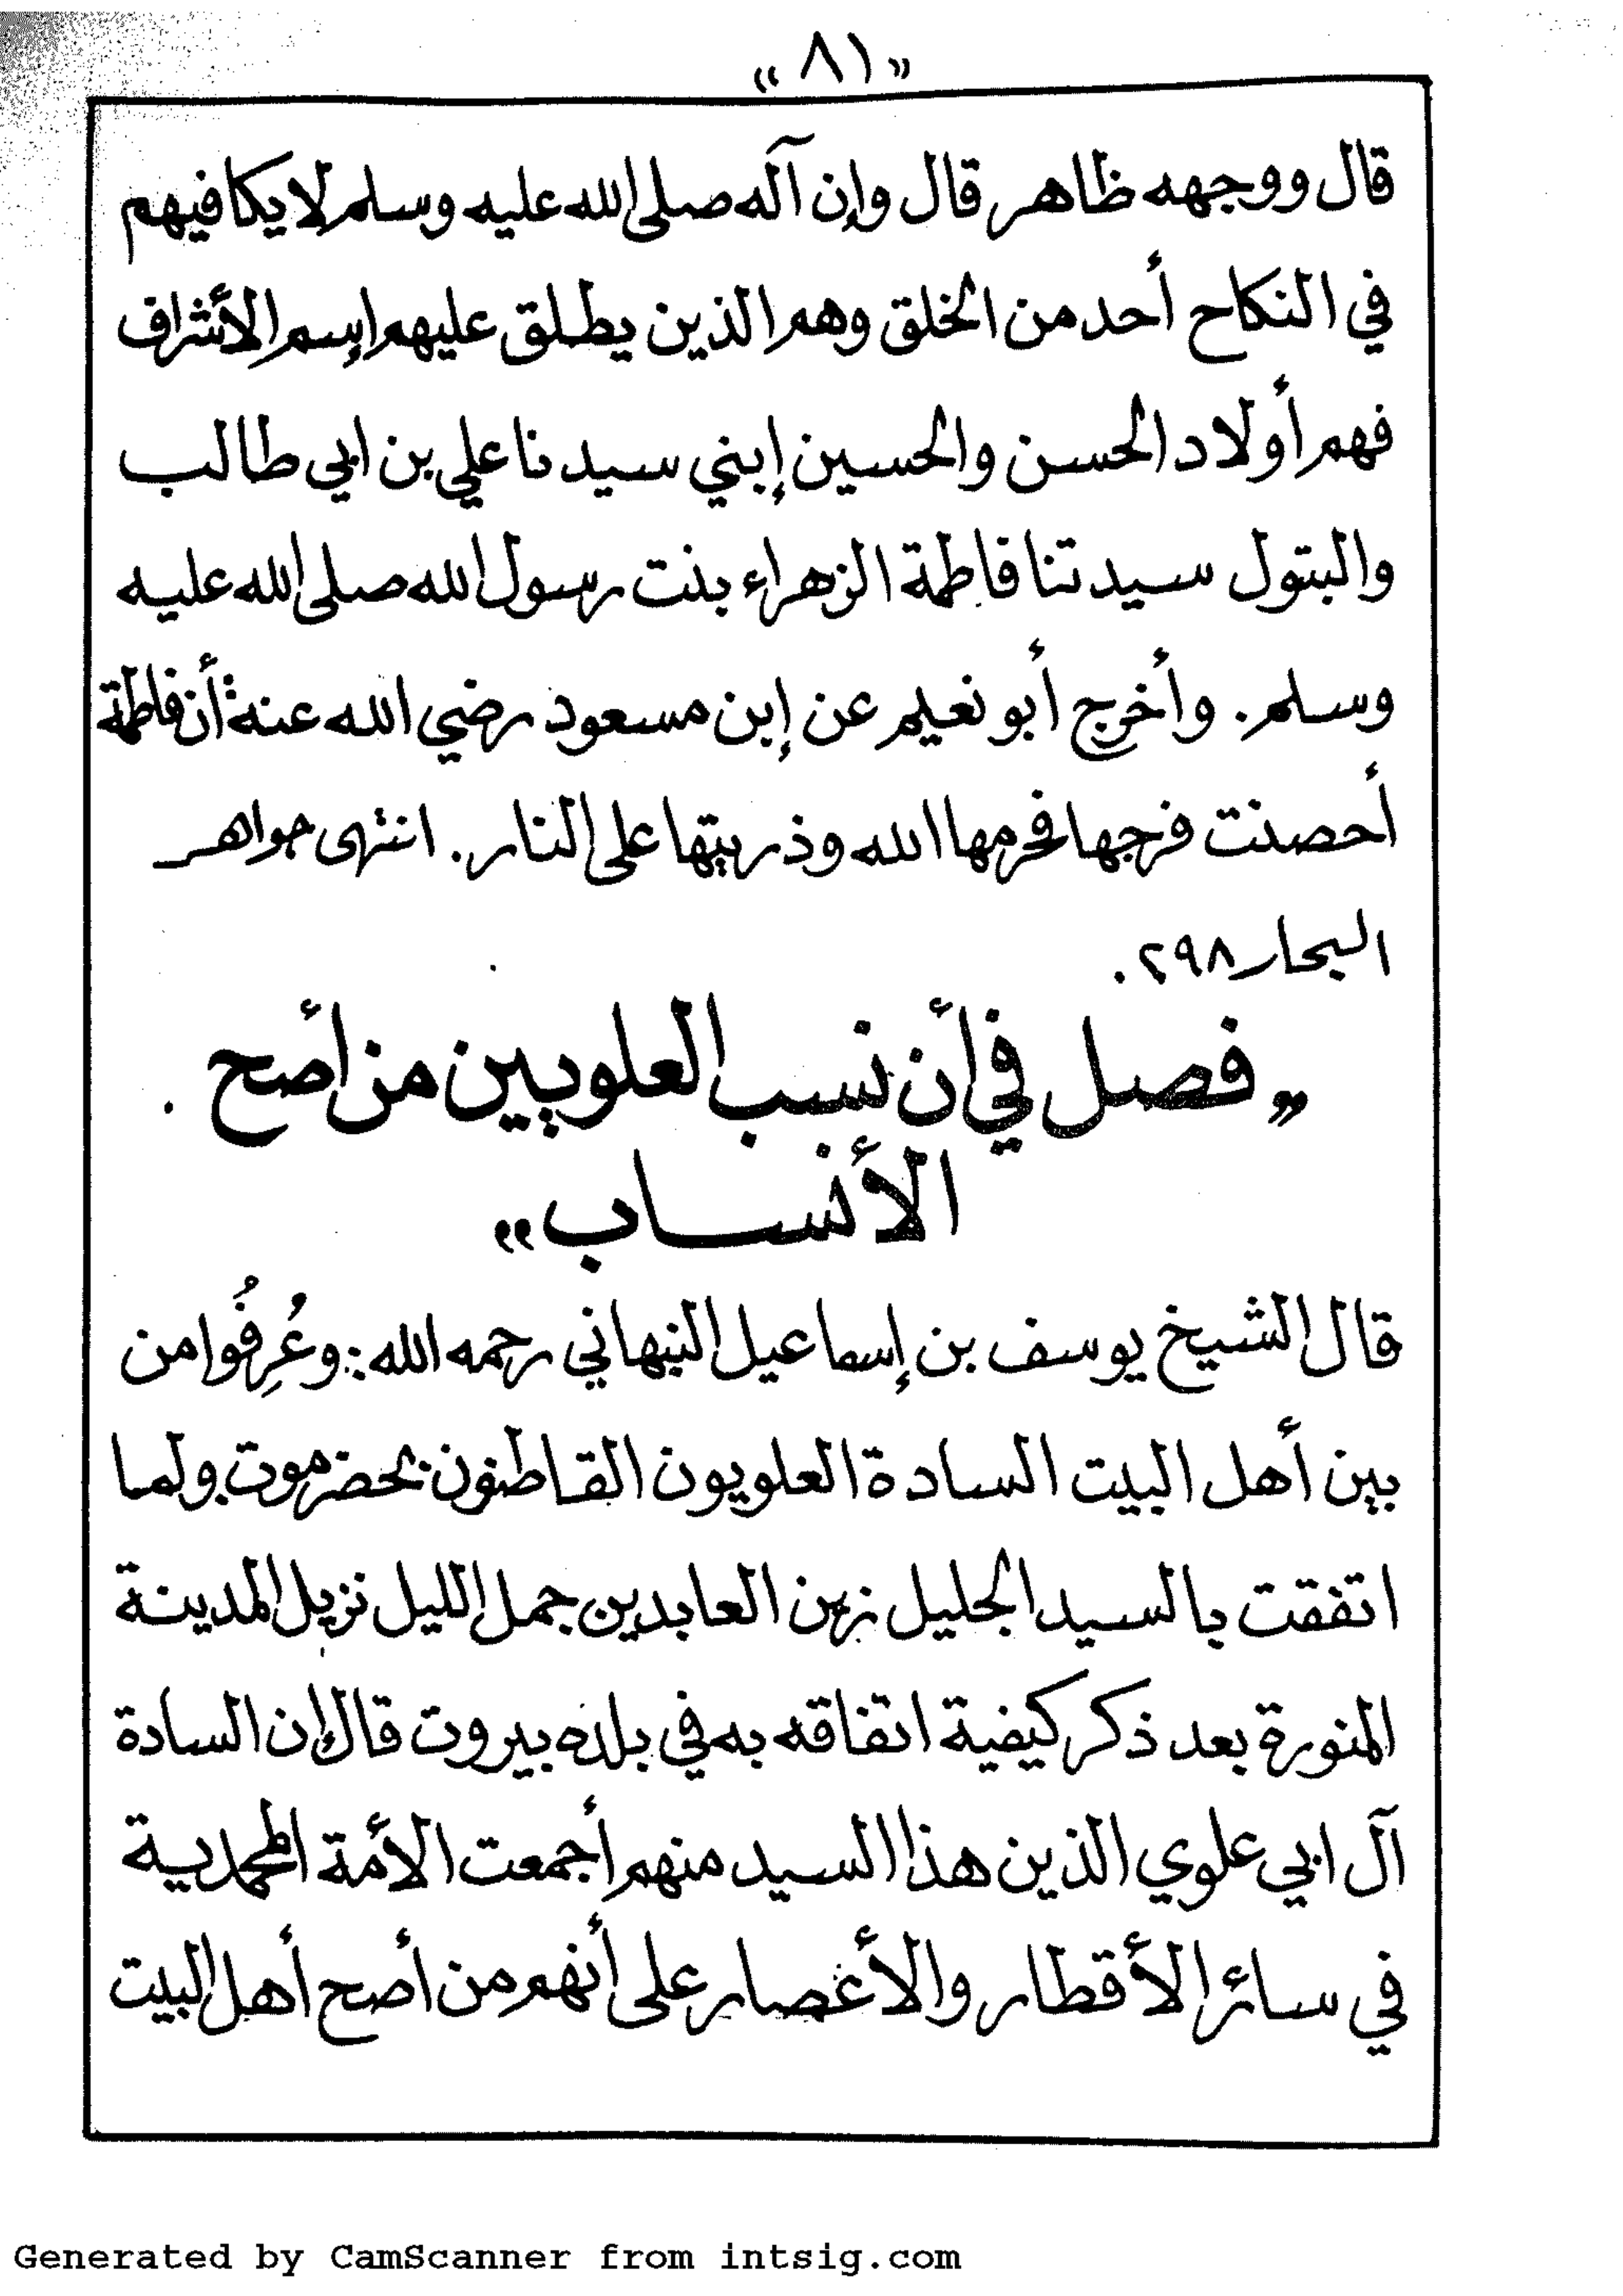 «٨١»
قال ووجهه ظاهر قال وإن آله صلى الله عليه وسلم لا يكافيهم
في النكاح أحد من الخلق وهم الذين يطلق عليهم إسم الأشراف
فهم أولاد الحسن والحسين إبني سيدنا علي بن ابي طالب
والبتول سيدتنا فاطمة الزهراء بنت رسول الله صلى الله عليه
وسلم. وأخرج أبو نعيم عن إبن مسعود رضي الله عنه: أن فاطمة
أحصنت فرجها فحرمها الله وذريتها على النار. انتهى جواهر
البحار ٢٩٨.
«فصل في أن نسب العلويين من أصح
الأنساب»
قال الشيخ يوسف بن إسماعيل النبهاني رحمه الله: وعُرِفُوا من
بين أهل البيت السادة العلويون القاطنون بحضرموت ولما
اتفقت بالسيد الجليل زين العابدين جمل الليل نزيل المدينة
المنورة بعد ذكر كيفية اتفاقه به في بلده بيروت قال إن السادة
آل ابي علوي الذين هذا السيد منهم أجمعت الأمة المحمدية
في سائر الأقطار والأغصار على أنهم من أصح أهل البيت
Generated by CamScanner from intsig.com